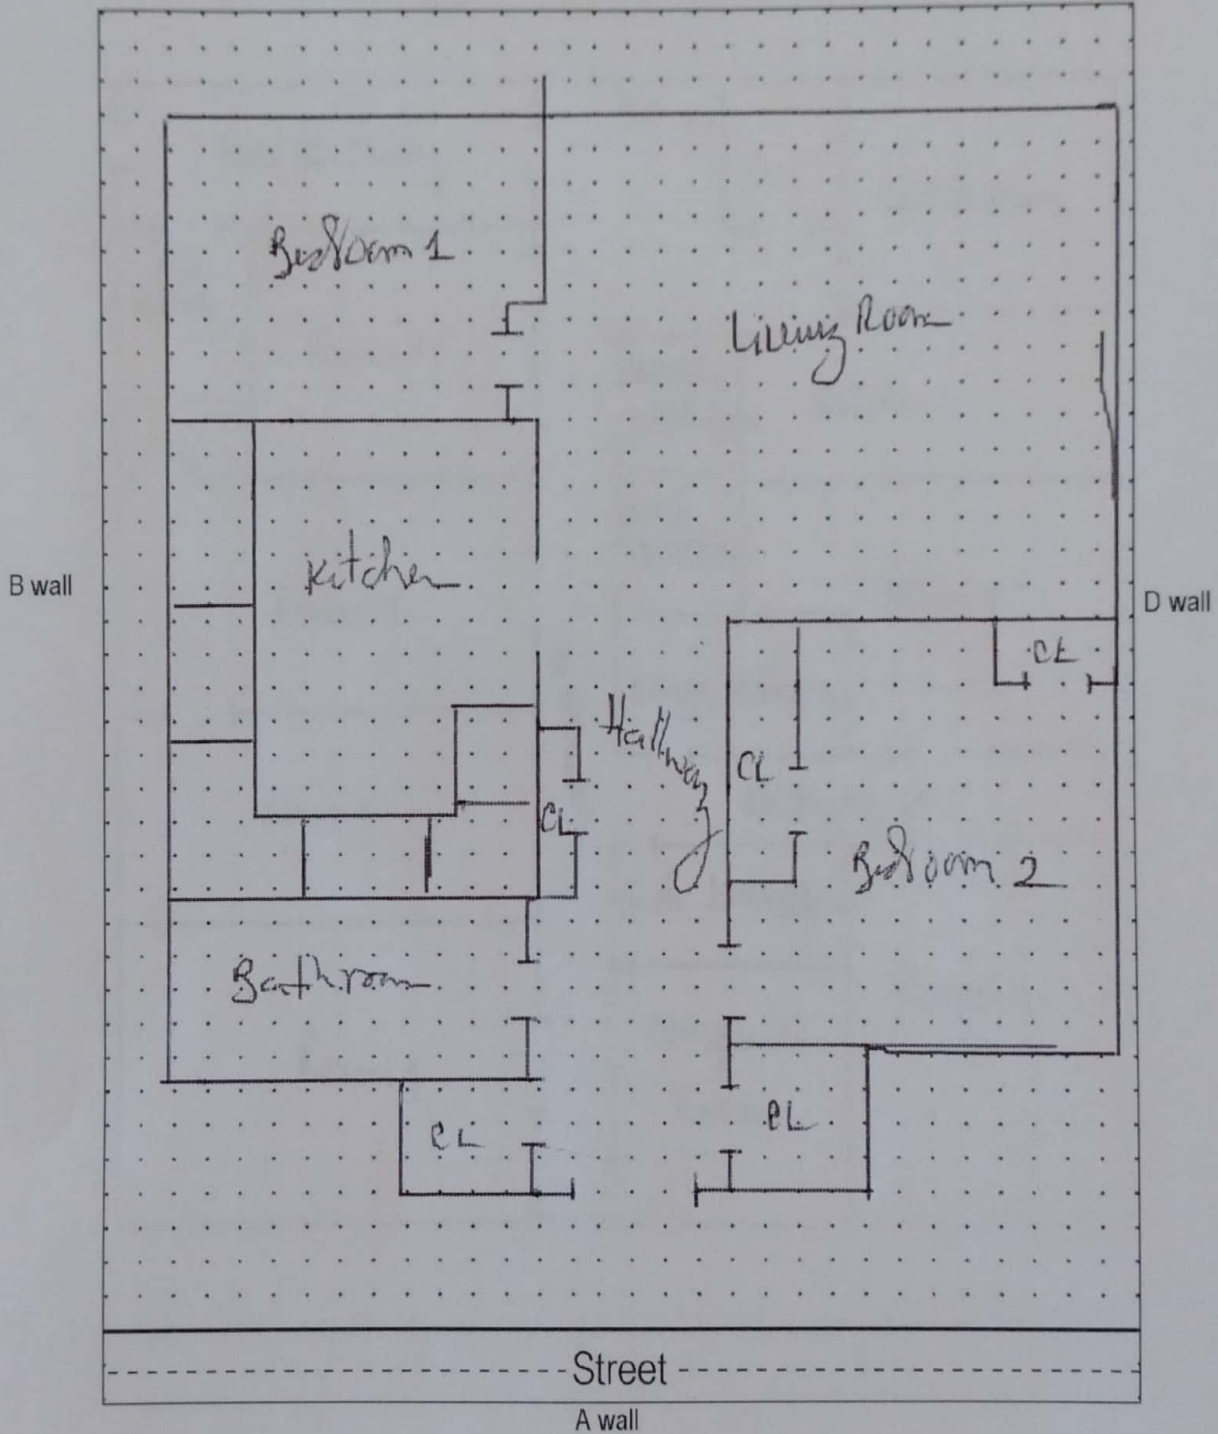 Bedroom 1
Living Room
Kitchen
B wall
D wall
CL
Hallway
CL
CL
Bedroom 2
Bathroom
CL
CL
Street
A wall